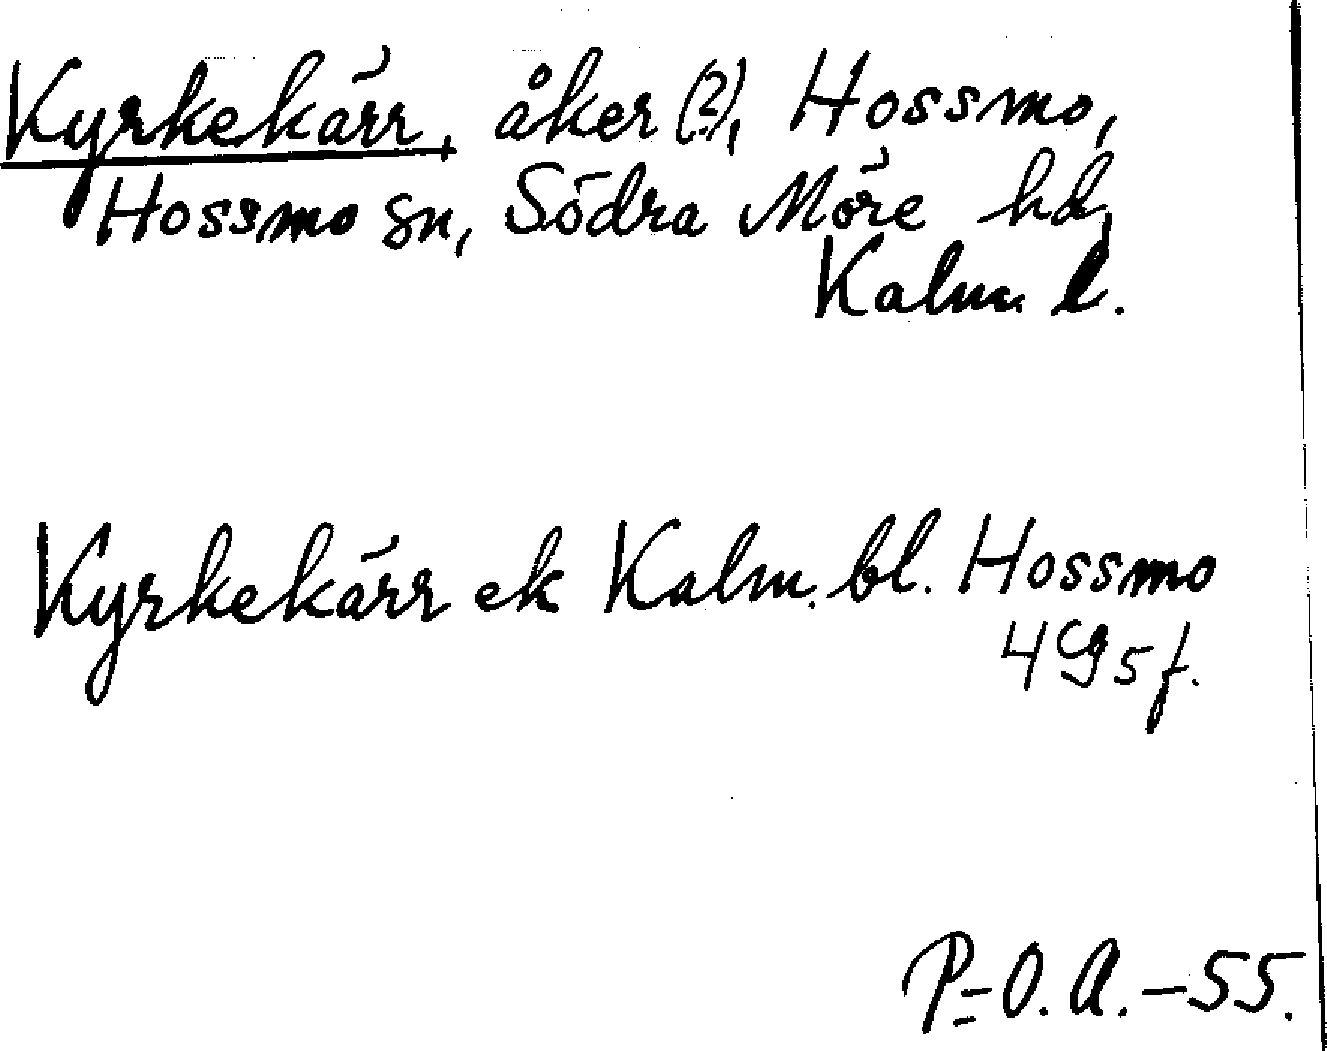 Kyrkekärr, åker (?), Hossmo,
Hossmo sn, Södra Möre hd,
Kalm. l.
Kyrkekärr ek Kalm. bl. Hossmo
4 G 5 f.
P=O. A. - 55.